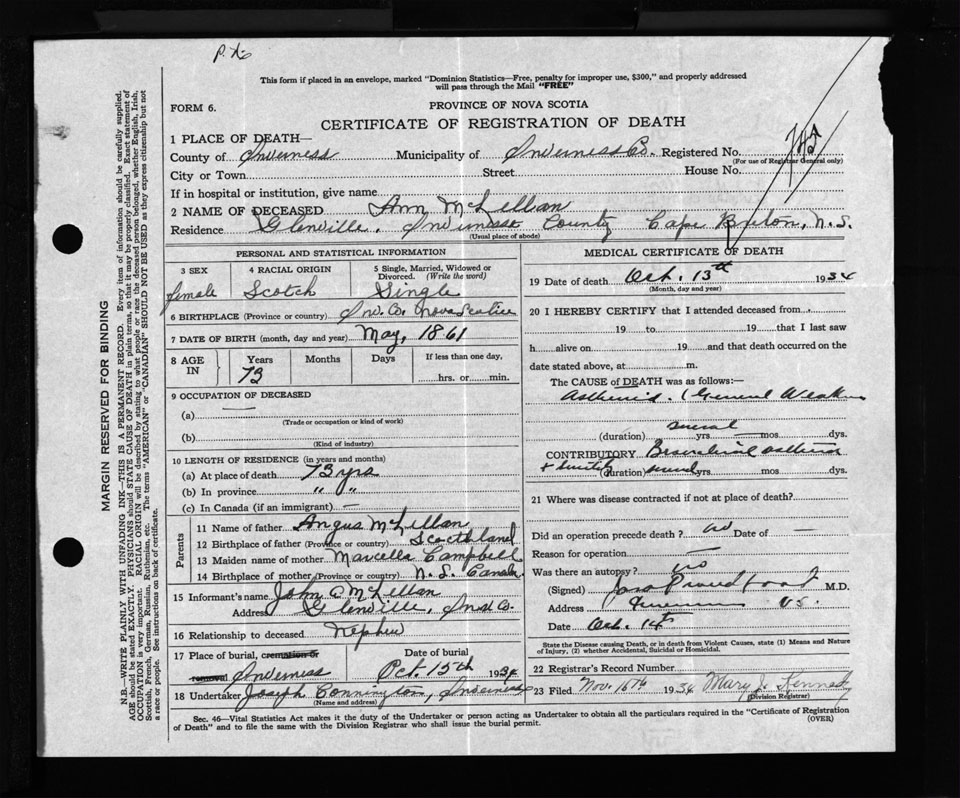 This form if placed in an envelope, marked "Dominion Statistics—Free, penalty for improper use, $300," and properly addressed
will pass through the Mail "FREE"
FORM 6.
PROVINCE OF NOVA SCOTIA
CERTIFICATE OF REGISTRATION OF DEATH
1 PLACE OF DEATH—
County of Inverness Municipality of Inverness Co. Registered No.
(For use of Registrar General only)
City or Town Street House No.
If in hospital or institution, give name
2 NAME OF DECEASED Ann McLellan
Residence Glenville, Inverness County Cape Breton, N.S.
(Usual place of abode)
PERSONAL AND STATISTICAL INFORMATION
3 SEX 4 RACIAL ORIGIN 5 Single, Married, Widowed or
Divorced. (Write the word)
female Scotch Single
6 BIRTHPLACE (Province or country) Inv. Co. Nova Scotia
7 DATE OF BIRTH (month, day and year) May, 1861
8 AGE IN Years Months Days If less than one day,
73 hrs. or min.
9 OCCUPATION OF DECEASED
(a) —
(Trade or occupation or kind of work)
(b)
(Kind of industry)
10 LENGTH OF RESIDENCE (in years and months)
(a) At place of death 73 yrs
(b) In province " "
(c) In Canada (if an immigrant) —
Parents
11 Name of father Angus McLellan
12 Birthplace of father (Province or country) Scocthland
13 Maiden name of mother Marcella Campbell
14 Birthplace of mother (Province or country) N. S. Canada
15 Informant's name John C McLellan
Address Glenville, Inv. Co.
16 Relationship to deceased Nephew
17 Place of burial, cremation or Date of burial
removal Inverness Oct. 15th 1934
18 Undertaker Joseph Connington, Inverness
(Name and address)
MEDICAL CERTIFICATE OF DEATH
19 Date of death Oct. 13th 1934
(Month, day and year)
20 I HEREBY CERTIFY that I attended deceased from
19 to 19 that I last saw
h alive on 19 and that death occurred on the
date stated above, at m.
The CAUSE of DEATH was as follows:—
Asthenia. (General Weakness
several
(duration) yrs. mos. dys.
CONTRIBUTORY Bronchial asthma
+ senility (duration) several yrs. mos. dys.
21 Where was disease contracted if not at place of death?
Did an operation precede death? no Date of —
Reason for operation —
Was there an autopsy? no
(Signed) Proudfoot M.D.
Address Inverness N.S.
Date Oct. 14th
State the Disease causing Death, or in death from Violent Causes, state (1) Means and Nature
of Injury, (2) whether Accidental, Suicidal or Homicidal.
22 Registrar's Record Number
23 Filed Nov. 16th 1934 Mary J. Kennedy
(Division Registrar)
Sec. 46—Vital Statistics Act makes it the duty of the Undertaker or person acting as Undertaker to obtain all the particulars required in the "Certificate of Registration
of Death" and to file the same with the Division Registrar who shall issue the burial permit. (OVER)
MARGIN RESERVED FOR BINDING
N.B.—WRITE PLAINLY WITH UNFADING INK—THIS IS A PERMANENT RECORD. Every item of information should be carefully supplied.
AGE should be stated EXACTLY. PHYSICIANS should STATE CAUSE OF DEATH in plain terms, so that it may be properly classified. Exact statement of
OCCUPATION is very important. RACIAL ORIGIN will be described by stating to what people or race the deceased person belonged, whether English, Irish,
Scottish, French, German, Russian, Ruthenian, etc. The terms "AMERICAN" or "CANADIAN" SHOULD NOT BE USED as they express citizenship but not
a race or people. See instructions on back of certificate.